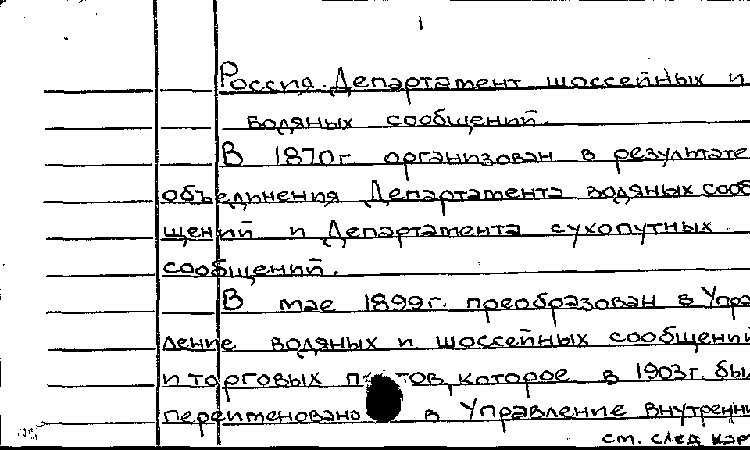 1
Россия. Департамент шоссейных и
водяных сообщений.
В 1870г. организован в результате
объединения Департамента водяных сооб
щений и Департамента сухопутных
сообщений.
В мае 1899г. преобразован в Упра
ление водяных и шоссейных сообщений
и торговых которое в 1903г. был
переименовано в Управление внутренни
см. след карт